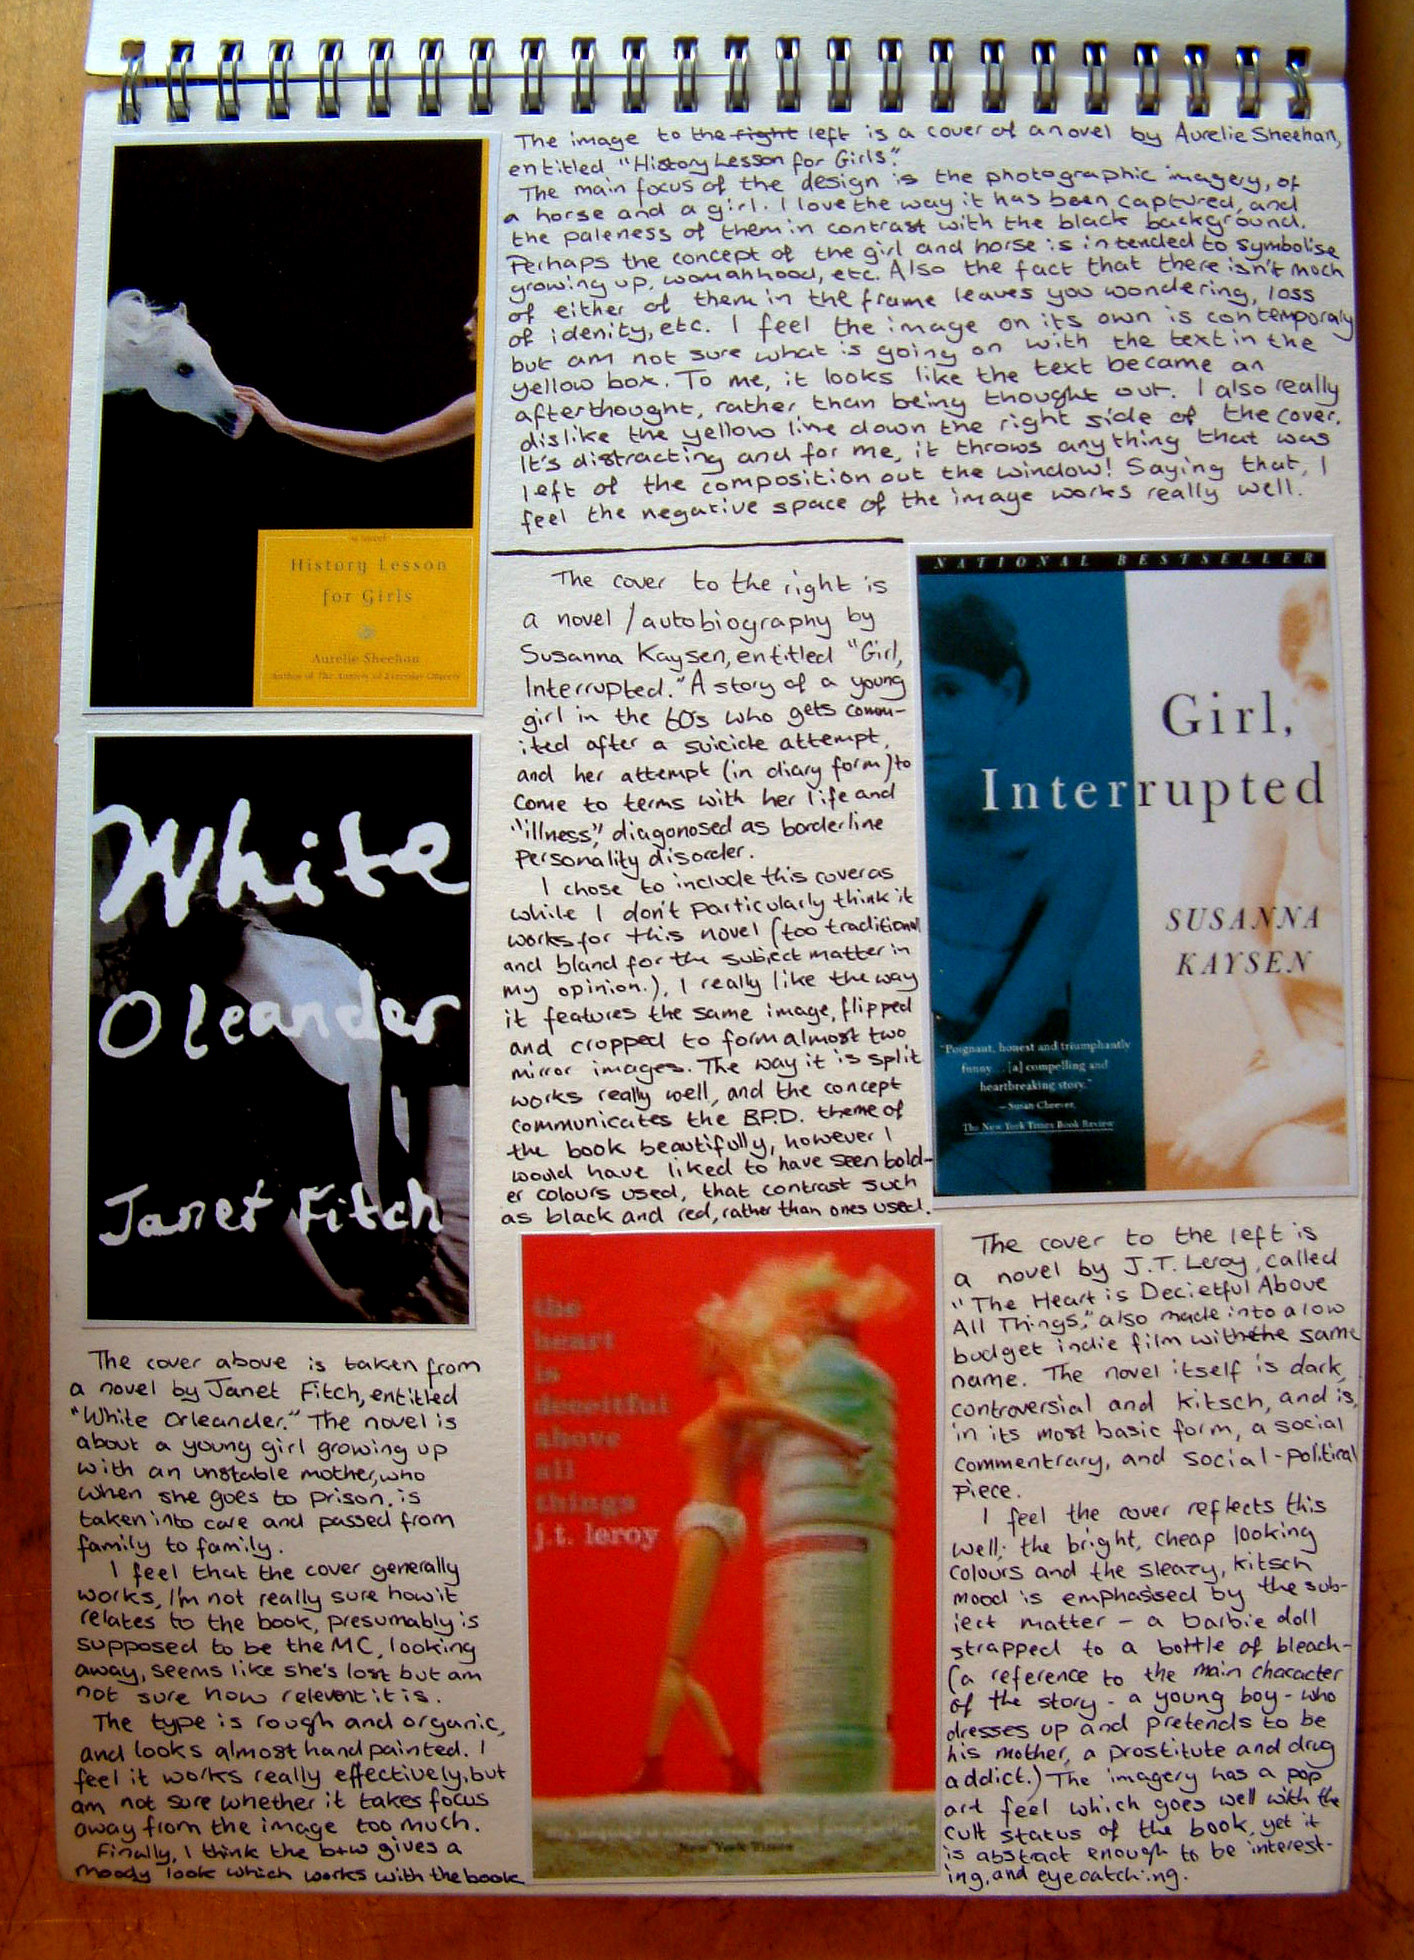 The image to the right left is a cover of a novel by Aurelie Sheehan,
entitled "History Lesson for Girls."
The main focus of the design is the photographic imagery, of
a horse and a girl. I love the way it has been captured, and
the paleness of them in contrast with the black background.
Perhaps the concept of the girl and horse is intended to symbolise
growing up, womanhood, etc. Also the fact that there isn't much
of either of them in the frame leaves you wondering, loss
of idenity, etc. I feel the image on its own is contemporary
but am not sure what is going on with the text in the
yellow box. To me, it looks like the text became an
afterthought, rather than being thought out. I also really
dislike the yellow line down the right side of the cover.
It's distracting and for me, it throws anything that was
left of the composition out the window! Saying that, I
feel the negative space of the image works really well.
a novel
History Lesson
for Girls
Aurelie Sheehan
Author of The Anxiety of Everyday Objects
The cover to the right is
a novel / autobiography by
Susanna Kaysen, entitled "Girl,
Interrupted." A story of a young
girl in the 60's who gets comm-
ited after a suicide attempt,
and her attempt (in diary form) to
come to terms with her life and
"illness", diagonosed as borderline
personality disorder.
I chose to include this cover as
while I don't particularly think it
works for this novel (too traditional
and bland for the subject matter in
my opinion.), I really like the way
it features the same image, flipped
and cropped to form almost two
mirror images. The way it is split
works really well, and the concept
communicates the B.P.D. theme of
the book beautifully, however I
would have liked to have seen bold-
er colours used, that contrast such
as black and red, rather than ones used.
NATIONAL BESTSELLER
Girl,
Interrupted
SUSANNA
KAYSEN
"Poignant, honest and triumphantly
funny... [a] compelling and
heartbreaking story."
—Susan Cheever,
The New York Times Book Review
White
Oleander
Janet Fitch
The cover above is taken from
a novel by Janet Fitch, entitled
"White Orleander." The novel is
about a young girl growing up
with an unstable mother, who
when she goes to prison, is
taken into care and passed from
family to family.
I feel that the cover generally
works, I'm not really sure how it
relates to the book, presumably is
supposed to be the MC, looking
away, seems like she's lost but am
not sure how relevent it is.
The type is rough and organic,
and looks almost hand painted. I
feel it works really effectively, but
am not sure whether it takes focus
away from the image too much.
Finally, I think the b+w gives a
moody look which works with the book
the
heart
is
deceitful
above
all
things
j.t. leroy
New York Times
The cover to the left is
a novel by J.T. Leroy, called
"The Heart is Decietful Above
All Things," also made into a low
budget indie film with the same
name. The novel itself is dark,
controversial and kitsch, and is,
in its most basic form, a social
commentrary, and social-political
piece.
I feel the cover reflects this
well; the bright, cheap looking
colours and the sleazy, kitsch
mood is emphasised by the sub-
ject matter - a barbie doll
strapped to a bottle of bleach-
(a reference to the main character
of the story - a young boy - who
dresses up and pretends to be
his mother, a prostitute and drug
addict.) The imagery has a pop
art feel which goes well with the
cult status of the book, yet it
is abstract enough to be interest-
ing, and eyecatching.